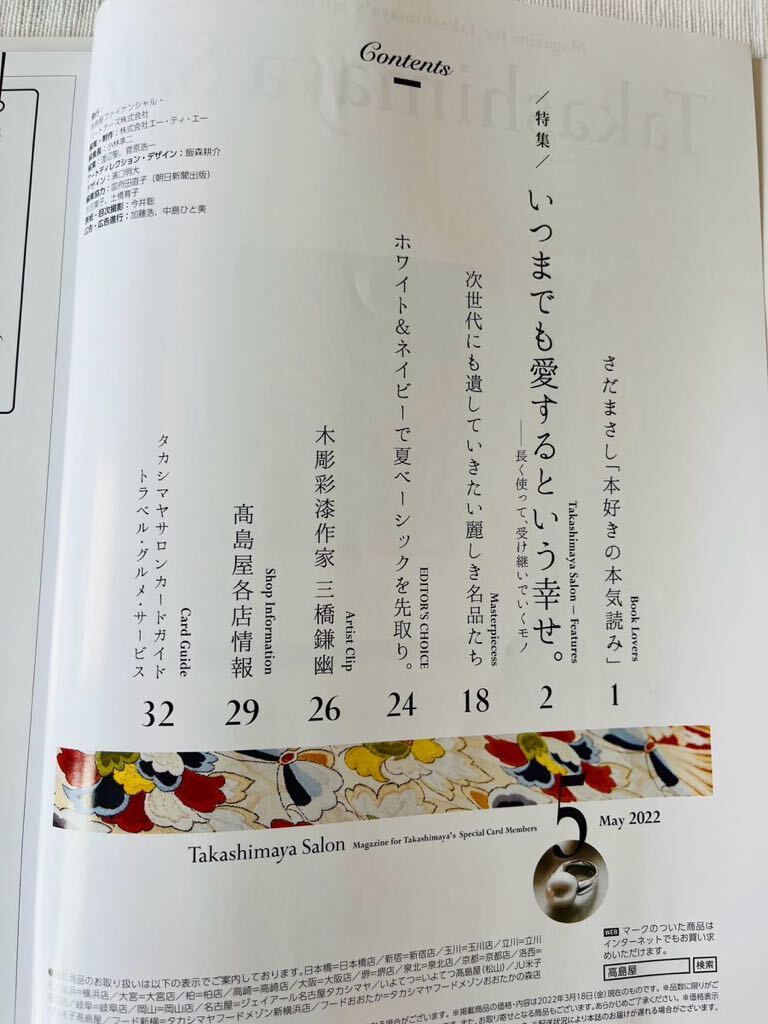 Contents
／特集／
さだまさし「本好きの本気読み」
Book Lovers
1
いつまでも愛するという幸せ。
——長く使って、受け継いでいくモノ
Takashimaya Salon — Features
2
次世代にも遺していきたい麗しき名品たち
Masterpiecess
18
ホワイト&ネイビーで夏ベーシックを先取り。
EDITOR'S CHOICE
24
木彫彩漆作家 三橋鎌幽
Artist Clip
26
髙島屋各店情報
Shop Information
29
タカシマヤサロンカードガイド
トラベル・グルメ・サービス
Card Guide
32
ファイナンシャル・
株式会社
制作：株式会社エー・ティ・エー
小林準二
菅原浩一
アートディレクション・デザイン：飯森耕介
デザイン：濱口明大
編集協力：国府田直子（朝日新聞出版）
土橋育子
目次撮影：今井聡
広告・広告進行：加藤浩、中島ひと美
5
May 2022
Takashimaya Salon Magazine for Takashimaya's Special Card Members
WEB マークのついた商品は
インターネットでもお買い求
めいただけます。
高島屋 検索
商品のお取り扱いは以下の表示でご案内しております。日本橋=日本橋店／新宿=新宿店／玉川=玉川店／立川=立川
横浜=横浜店／大宮=大宮店／柏=柏店／高崎=高崎店／大阪=大阪店／堺=堺店／泉北=泉北店／京都=京都店／洛西=
岐阜=岐阜店／岡山=岡山店／名古屋=ジェイアール名古屋タカシマヤ／いよてつ=いよてつ髙島屋(松山)／JU米子
髙島屋／フード新横=タカシマヤフードメゾン新横浜店／フードおおたか=タカシマヤフードメゾンおおたかの森店
※掲載商品の価格・内容は2022年3月18日(金)現在のものです。※品数に限りがご